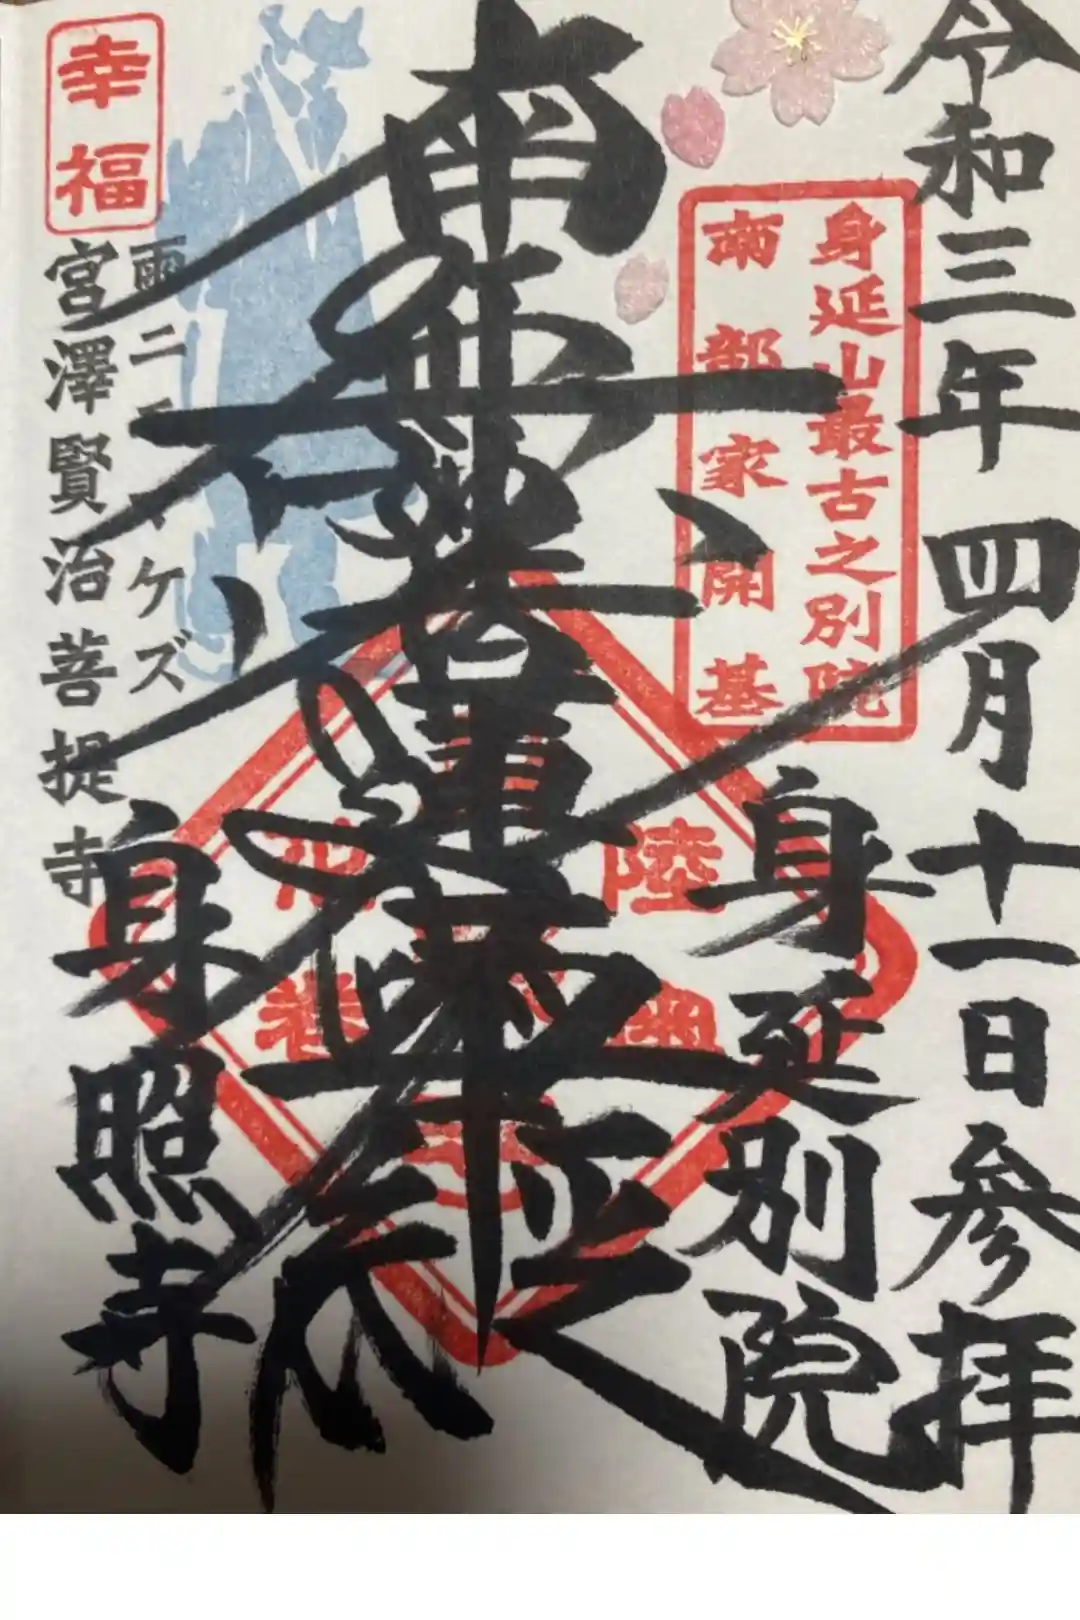 令和三年四月十一日参拝
身延山最古之別院
南部家開基
身延別院
南無妙法蓮華経
陸奥
花巻
幸福
雨ニモマケズ
宮澤賢治菩提寺
身照寺